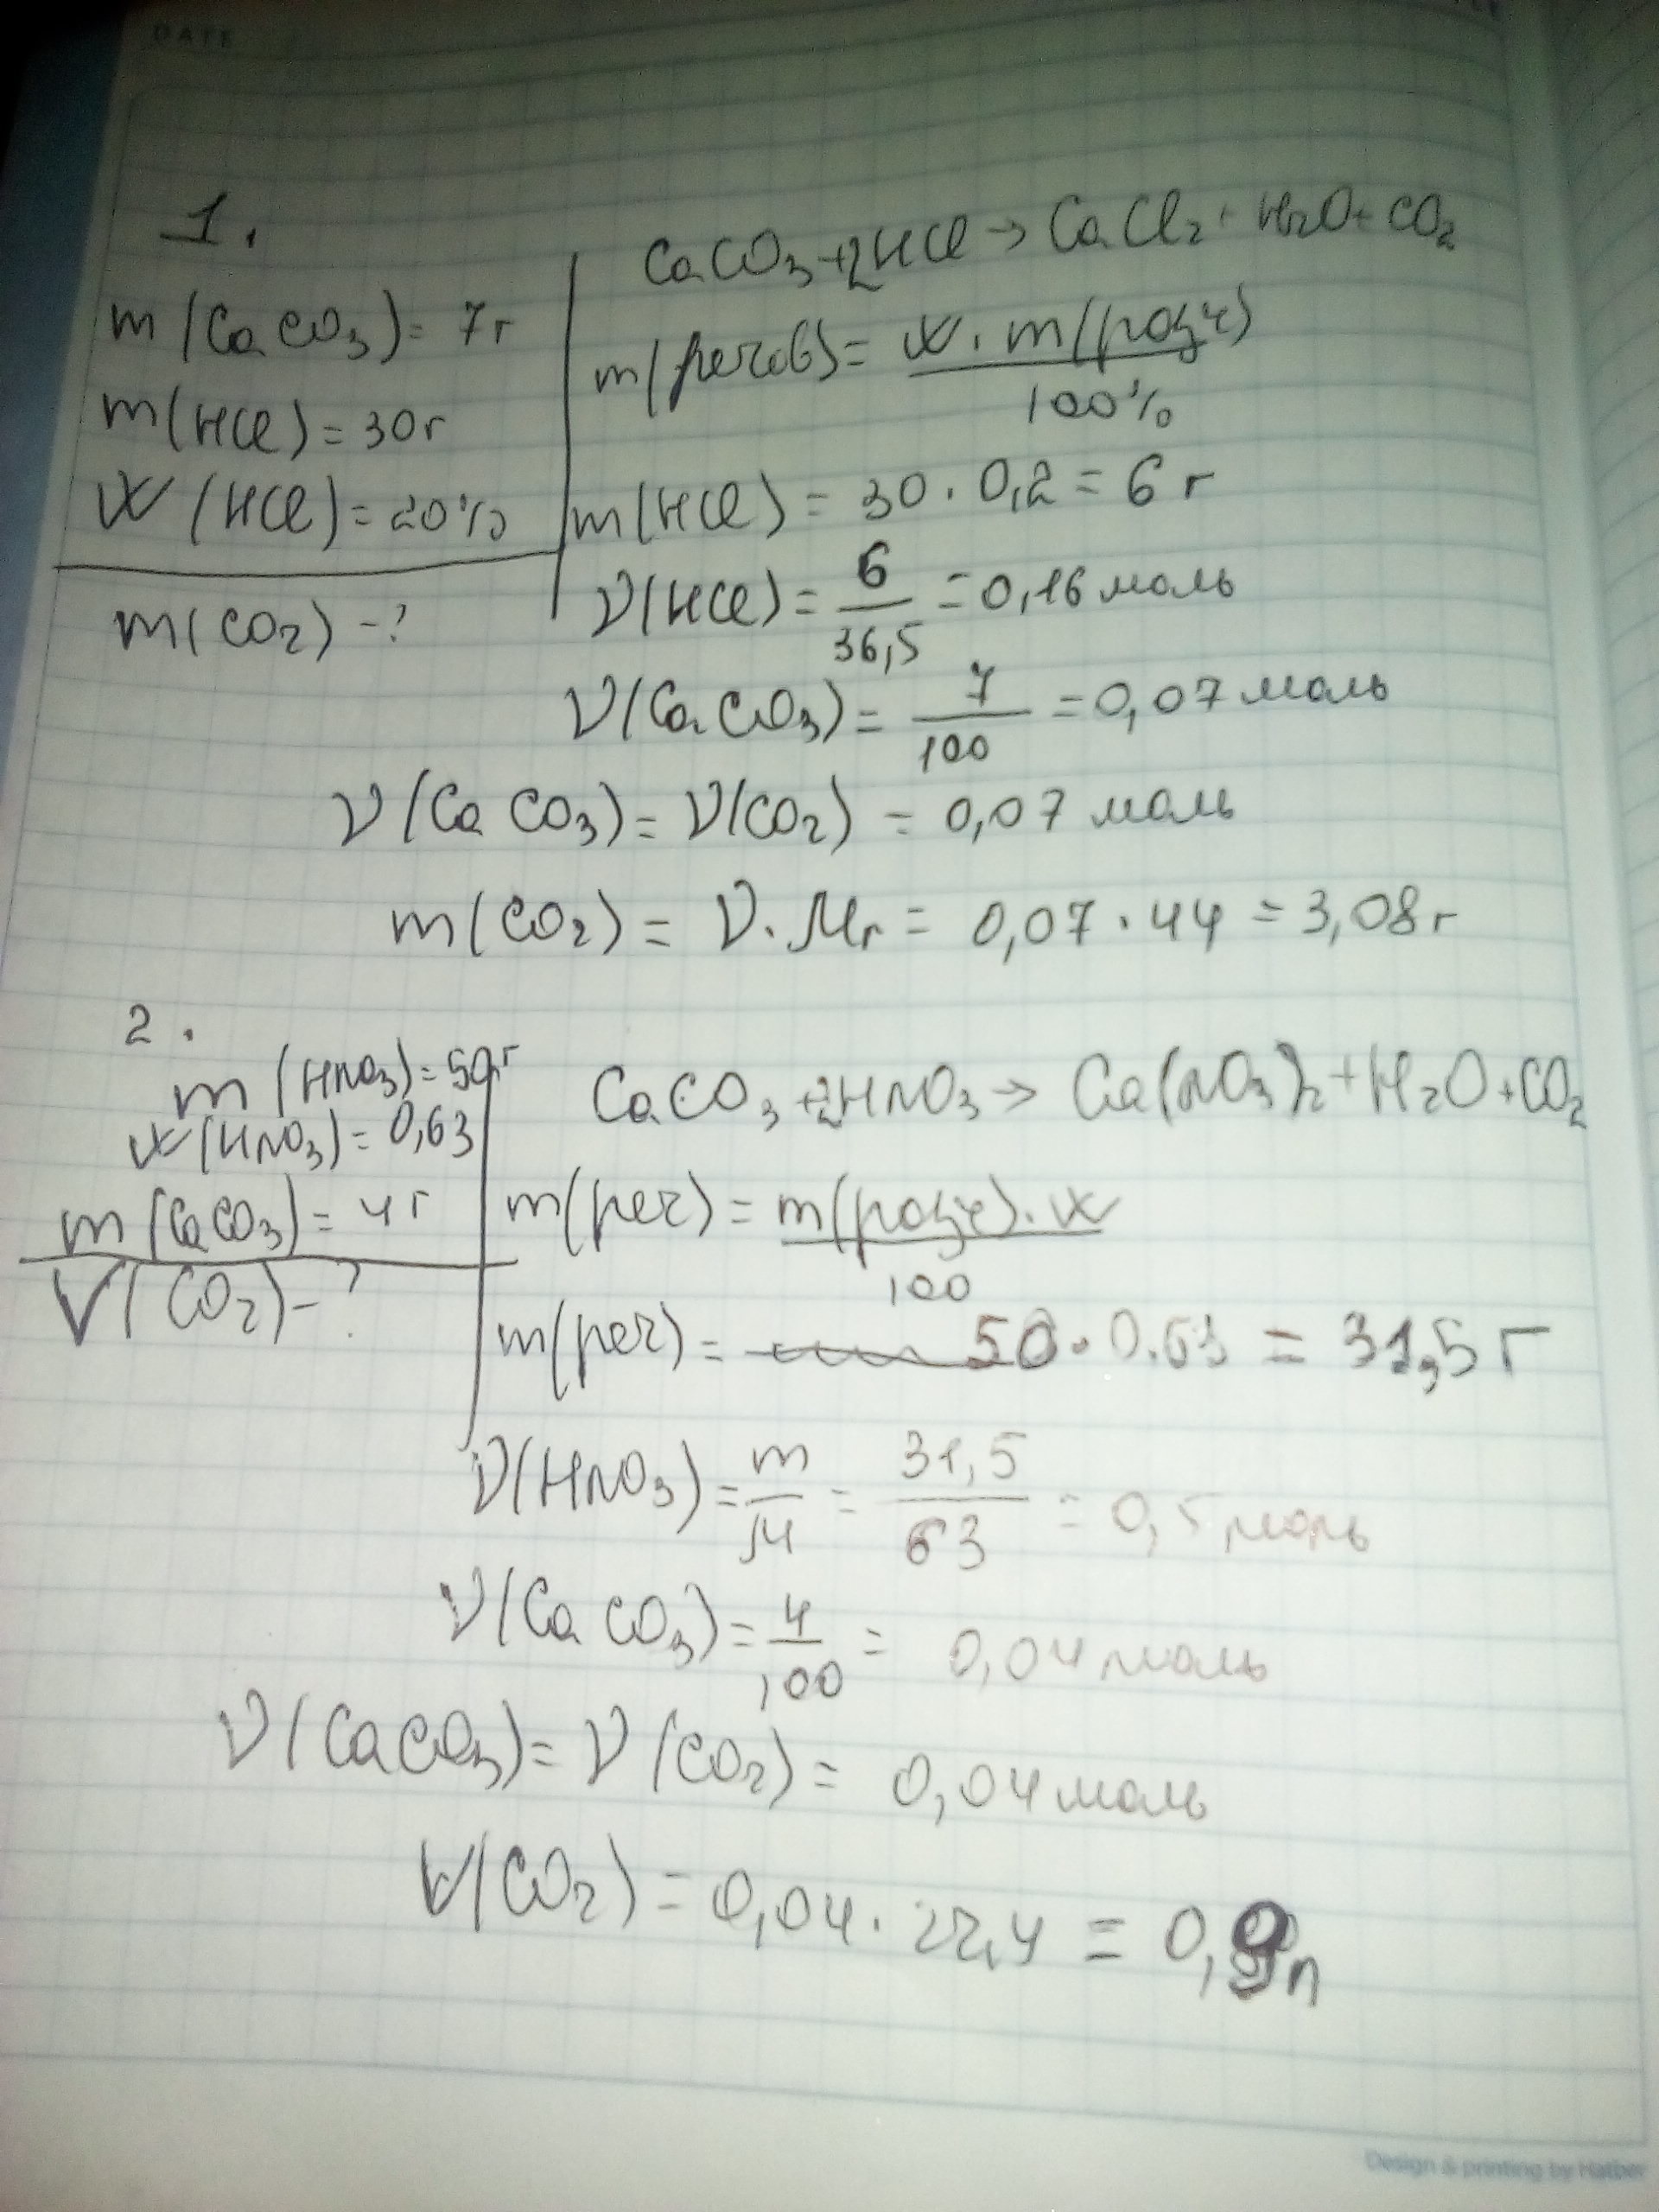 DATE
1.
m(CaCO3)= 7г
m(HCl)=30г
W(HCl)=20%
m(CO2)-?
CaCO3+2HCl→CaCl2+H2O+CO2
m(речов)= W·m(розч)
100%
m(HCl)=30·0,2=6г
ν(HCl)= 6/36,5 =0,16моль
ν(CaCO3)= 7/100 =0,07моль
ν(CaCO3)=ν(CO2)=0,07моль
m(CO2)=ν·Mr=0,07·44=3,08г
2.
m(HNO3)=50г
W(HNO3)=0,63
m(CaCO3)=4г
V(CO2)-?
CaCO3+2HNO3→Ca(NO3)2+H2O+CO2
m(реч)= m(розч)·W
100
m(реч)= 50·0.63=31,5г
ν(HNO3)= m/M = 31,5/63 =0,5моль
ν(CaCO3)= 4/100 = 0,04моль
ν(CaCO3)=ν(CO2)= 0,04моль
V(CO2)=0,04·22,4=0,9л
Design & printing by Hatber